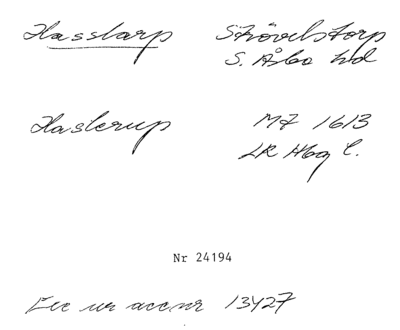 Hasslarp Strövelstorp
S. Åsbo hd
Haslerup M7 1613
LR Hbg l.
Nr 24194
Exc ur accnr 13427